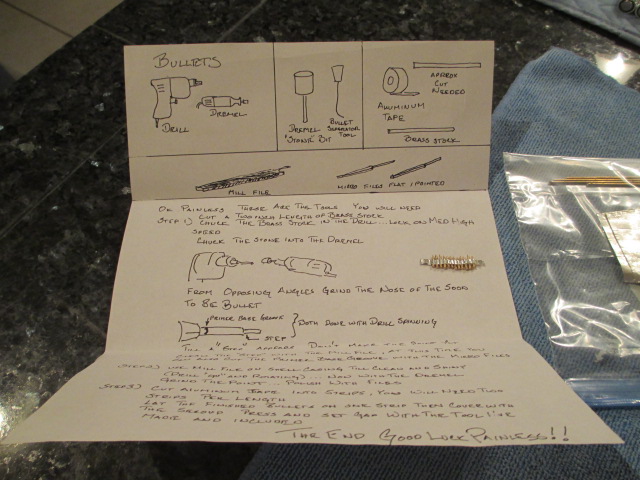 BULLETS
DRILL
DREMEL
DREMEL "STONE" BIT
BULLET SEPERATOR TOOL
APPROX CUT NEEDED
ALUMINUM TAPE
BRASS STOCK
MILL FILE
MICRO FILES FLAT & POINTED
OK PAINLESS THESE ARE THE TOOLS YOU WILL NEED
STEP 1) CUT A TWO INCH LENGTH OF BRASS STOCK
CHUCK THE BRASS STOCK IN THE DRILL... LOCK ON MED HIGH
SPEED
CHUCK THE STONE INTO THE DREMEL
FROM OPPOSING ANGLES GRIND THE NOSE OF THE SOON
TO BE BULLET
PRIMER BASE GROOVE
STEP
BOTH DONE WITH DRILL SPINNING
THE MICRO FILES
STEP 2) USE MILL FILE ON SHELL CASING TILL CLEAN AND SHINY
(DRILL "ON" AND ROTATING) NOW WITH THE DREMEL
GRIND THE POINT. POLISH WITH FILES
STEP 3) CUT ALUMINUM TAPE INTO STRIPS, YOU WILL NEED TWO
STRIPS PER LENGTH
LAY THE FINISHED BULLETS ON ONE STRIP THEN COVER WITH
THE SECOND PRESS AND SET GAP WITH THE TOOL I'VE
MADE AND INCLUDED
THE END GOOD LUCK PAINLESS!!